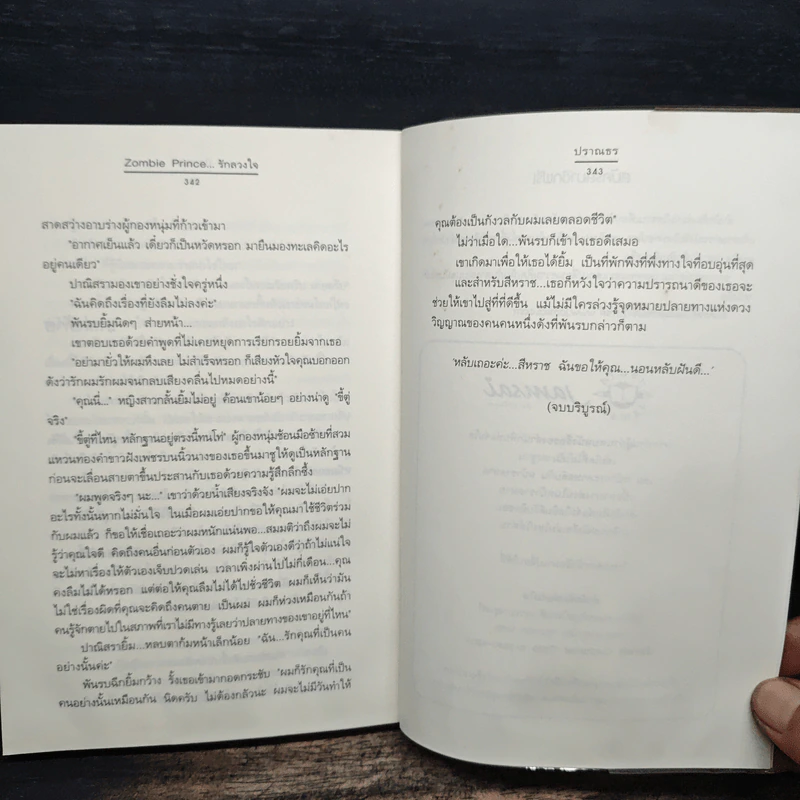 Zombie Prince... รักลวงใจ
342
สาดสว่างอาบร่างผู้กองหนุ่มที่ก้าวเข้ามา
"อากาศเย็นแล้ว เดี๋ยวก็เป็นหวัดหรอก มายืนมองทะเลคิดอะไร
อยู่คนเดียว"
ปาณิสรามองเขาอย่างชั่งใจครู่หนึ่ง
"ฉันคิดถึงเรื่องที่ยังลืมไม่ลงค่ะ"
พันรบยิ้มนิดๆ ส่ายหน้า...
เขาตอบเธอด้วยคำพูดที่ไม่เคยหยุดการเรียกรอยยิ้มจากเธอ
"อย่ามายั่วให้ผมหึงเลย ไม่สำเร็จหรอก ก็เสียงหัวใจคุณบอกออก
ดังว่ารักผมรักผมจนกลบเสียงคลื่นไปหมดอย่างนี้"
"คุณนี่..." หญิงสาวกลั้นยิ้มไม่อยู่ ค้อนเขาน้อยๆ อย่างน่าดู "ขี้ตู่
จริง"
"ขี้ตู่ที่ไหน หลักฐานอยู่ตรงนี้ทนโท่" ผู้กองหนุ่มช้อนมือซ้ายที่สวม
แหวนทองคำขาวฝังเพชรบนนิ้วนางของเธอขึ้นมาชูให้ดูเป็นหลักฐาน
ก่อนจะเลื่อนสายตาขึ้นประสานกับเธอด้วยความรู้สึกลึกซึ้ง
"ผมพูดจริงๆ นะ..." เขาว่าด้วยน้ำเสียงจริงจัง "ผมจะไม่เอ่ยปาก
อะไรทั้งนั้นหากไม่มั่นใจ ในเมื่อผมเอ่ยปากขอให้คุณมาใช้ชีวิตร่วม
กับผมแล้ว ก็ขอให้เชื่อเถอะว่าผมหนักแน่นพอ...สมมติว่าถึงผมจะไม่
รู้ว่าคุณใจดี คิดถึงคนอื่นก่อนตัวเอง ผมก็รู้ใจตัวเองดีว่าถ้าไม่แน่ใจ
จะไม่หาเรื่องให้ตัวเองเจ็บปวดเล่น เวลาเพิ่งผ่านไปไม่กี่เดือน...คุณ
คงลืมไม่ได้หรอก แต่ต่อให้คุณลืมไม่ได้ไปชั่วชีวิต ผมก็เห็นว่ามัน
ไม่ใช่เรื่องผิดที่คุณจะคิดถึงคนตาย เป็นผม ผมก็ห่วงเหมือนกันถ้า
คนรู้จักตายไปในสภาพที่เราไม่มีทางรู้เลยว่าปลายทางของเขาอยู่ที่ไหน"
ปาณิสรายิ้ม...หลบตาก้มหน้าเล็กน้อย "ฉัน...รักคุณที่เป็นคน
อย่างนั้นค่ะ"
พันรบฉีกยิ้มกว้าง รั้งเธอเข้ามากอดกระชับ "ผมก็รักคุณที่เป็น
คนอย่างนั้นเหมือนกัน นิดครับ ไม่ต้องกลัวนะ ผมจะไม่มีวันทำให้
ปราณธร
343
คุณต้องเป็นกังวลกับผมเลยตลอดชีวิต"
ไม่ว่าเมื่อใด...พันรบก็เข้าใจเธอดีเสมอ
เขาเกิดมาเพื่อให้เธอได้ยิ้ม เป็นที่พักพิงที่พึ่งทางใจที่อบอุ่นที่สุด
และสำหรับสีหราช...เธอก็หวังใจว่าความปรารถนาดีของเธอจะ
ช่วยให้เขาไปสู่ที่ที่ดีขึ้น แม้ไม่มีใครล่วงรู้จุดหมายปลายทางแห่งดวง
วิญญาณของคนคนหนึ่งดังที่พันรบกล่าวก็ตาม
'หลับเถอะค่ะ...สีหราช ฉันขอให้คุณ...นอนหลับฝันดี...'
(จบบริบูรณ์)